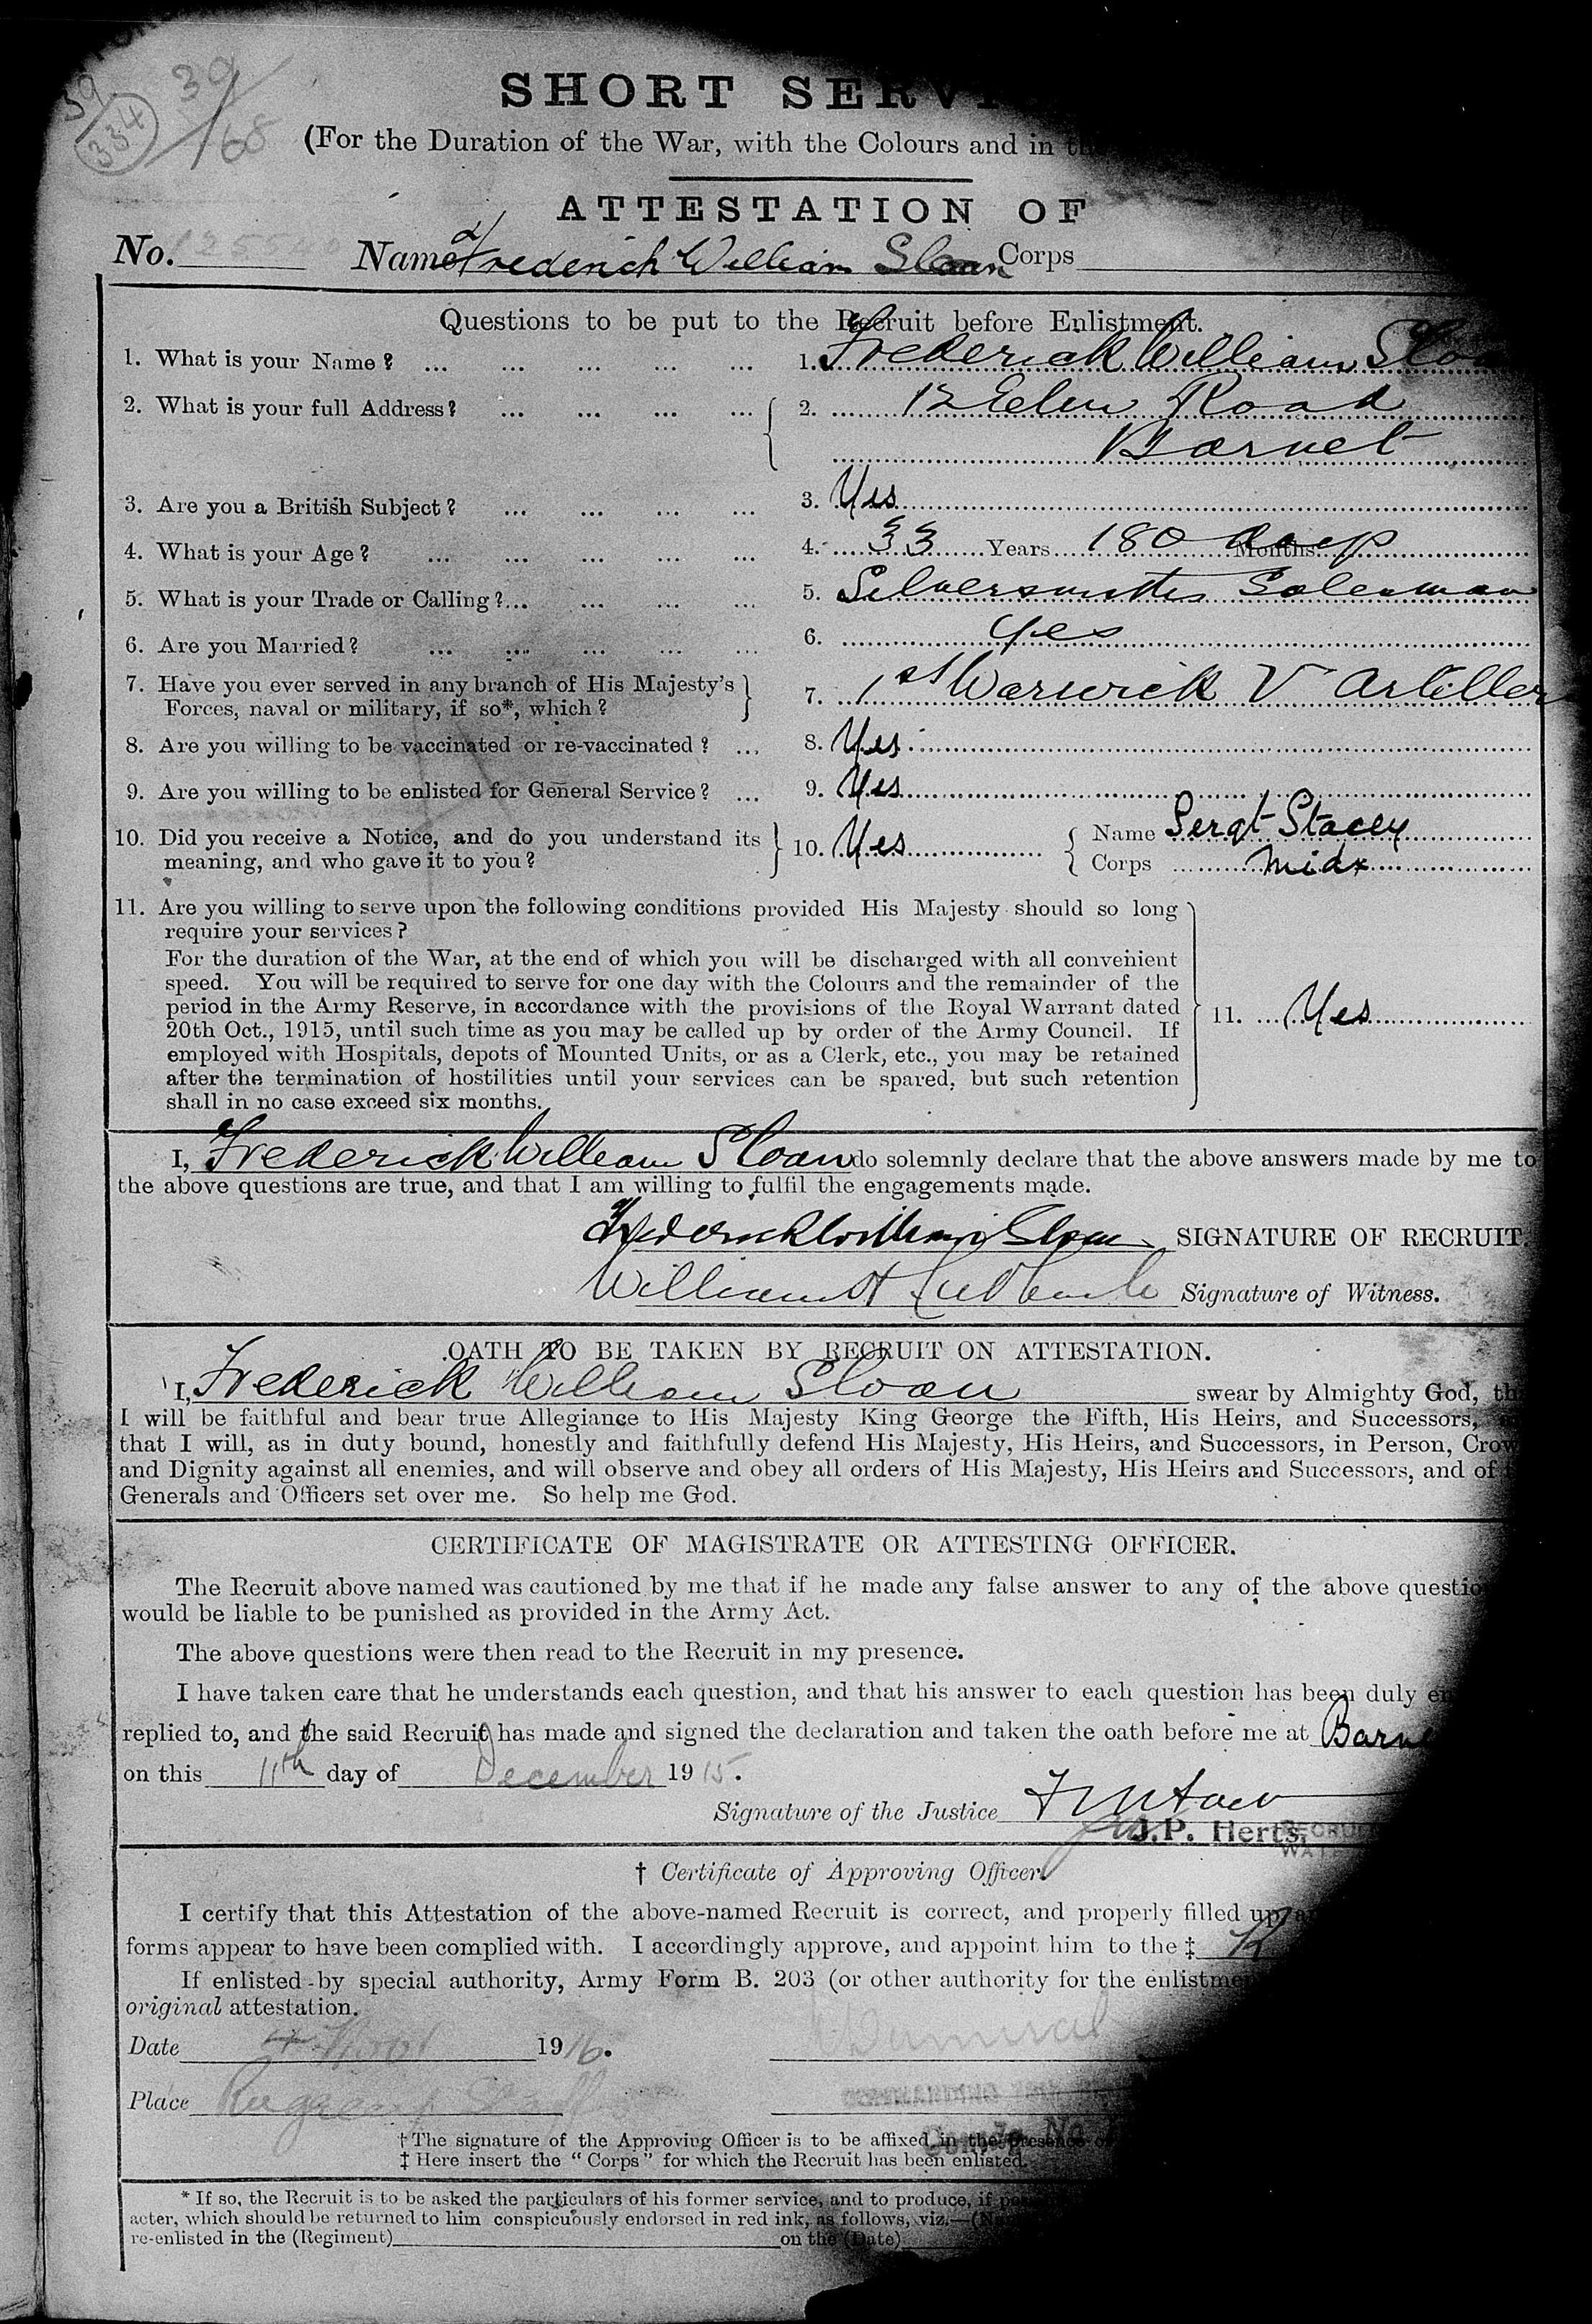 39
334
39/68
SHORT SERV
(For the Duration of the War, with the Colours and in th
ATTESTATION OF
No. 125540 Name Frederick William Sloan Corps
Questions to be put to the Recruit before Enlistment.
1. What is your Name? ... ... ... ... ... 1. Frederick William Sloa
2. What is your full Address? ... ... ... ... 2. 12 Road
Barnet
3. Are you a British Subject? ... ... ... ... 3. Yes
4. What is your Age? ... ... ... ... ... 4. 33 Years 180 days Months
5. What is your Trade or Calling?... ... ... ... 5. Silversmiths Salesman
6. Are you Married? ... ... ... ... ... 6. Yes
7. Have you ever served in any branch of His Majesty's
Forces, naval or military, if so*, which? 7. 1st Warwick V Artiller
8. Are you willing to be vaccinated or re-vaccinated? ... 8. Yes
9. Are you willing to be enlisted for General Service? ... 9. Yes
10. Did you receive a Notice, and do you understand its
meaning, and who gave it to you? 10. Yes Name Sergt Stacey
Corps Midx
11. Are you willing to serve upon the following conditions provided His Majesty should so long
require your services?
For the duration of the War, at the end of which you will be discharged with all convenient
speed. You will be required to serve for one day with the Colours and the remainder of the
period in the Army Reserve, in accordance with the provisions of the Royal Warrant dated
20th Oct., 1915, until such time as you may be called up by order of the Army Council. If
employed with Hospitals, depots of Mounted Units, or as a Clerk, etc., you may be retained
after the termination of hostilities until your services can be spared, but such retention
shall in no case exceed six months.
11. Yes
I, Frederick William Sloan do solemnly declare that the above answers made by me to
the above questions are true, and that I am willing to fulfil the engagements made.
Frederick William Sloan SIGNATURE OF RECRUIT.
William H Signature of Witness.
OATH TO BE TAKEN BY RECRUIT ON ATTESTATION.
I, Frederick William Sloan swear by Almighty God, th
I will be faithful and bear true Allegiance to His Majesty King George the Fifth, His Heirs, and Successors,
that I will, as in duty bound, honestly and faithfully defend His Majesty, His Heirs, and Successors, in Person, Crow
and Dignity against all enemies, and will observe and obey all orders of His Majesty, His Heirs and Successors, and of
Generals and Officers set over me. So help me God.
CERTIFICATE OF MAGISTRATE OR ATTESTING OFFICER.
The Recruit above named was cautioned by me that if he made any false answer to any of the above questio
would be liable to be punished as provided in the Army Act.
The above questions were then read to the Recruit in my presence.
I have taken care that he understands each question, and that his answer to each question has been duly e
replied to, and the said Recruit has made and signed the declaration and taken the oath before me at Barne
on this 11th day of December 1915.
Signature of the Justice
J.P. Herts.
† Certificate of Approving Officer.
I certify that this Attestation of the above-named Recruit is correct, and properly filled up, a
forms appear to have been complied with. I accordingly approve, and appoint him to the ‡ R
If enlisted by special authority, Army Form B. 203 (or other authority for the enlistme
original attestation.
Date 1916.
Place
† The signature of the Approving Officer is to be affixed in the presence o
‡ Here insert the "Corps" for which the Recruit has been enlisted.
* If so, the Recruit is to be asked the particulars of his former service, and to produce, if po
acter, which should be returned to him conspicuously endorsed in red ink, as follows, viz.—(Na
re-enlisted in the (Regiment) on the (Date)